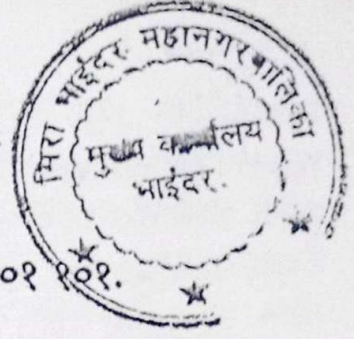 मिरा भाईंदर महानगरपालिका
मुख्य कार्यालय
भाईंदर.
०१ १०१.